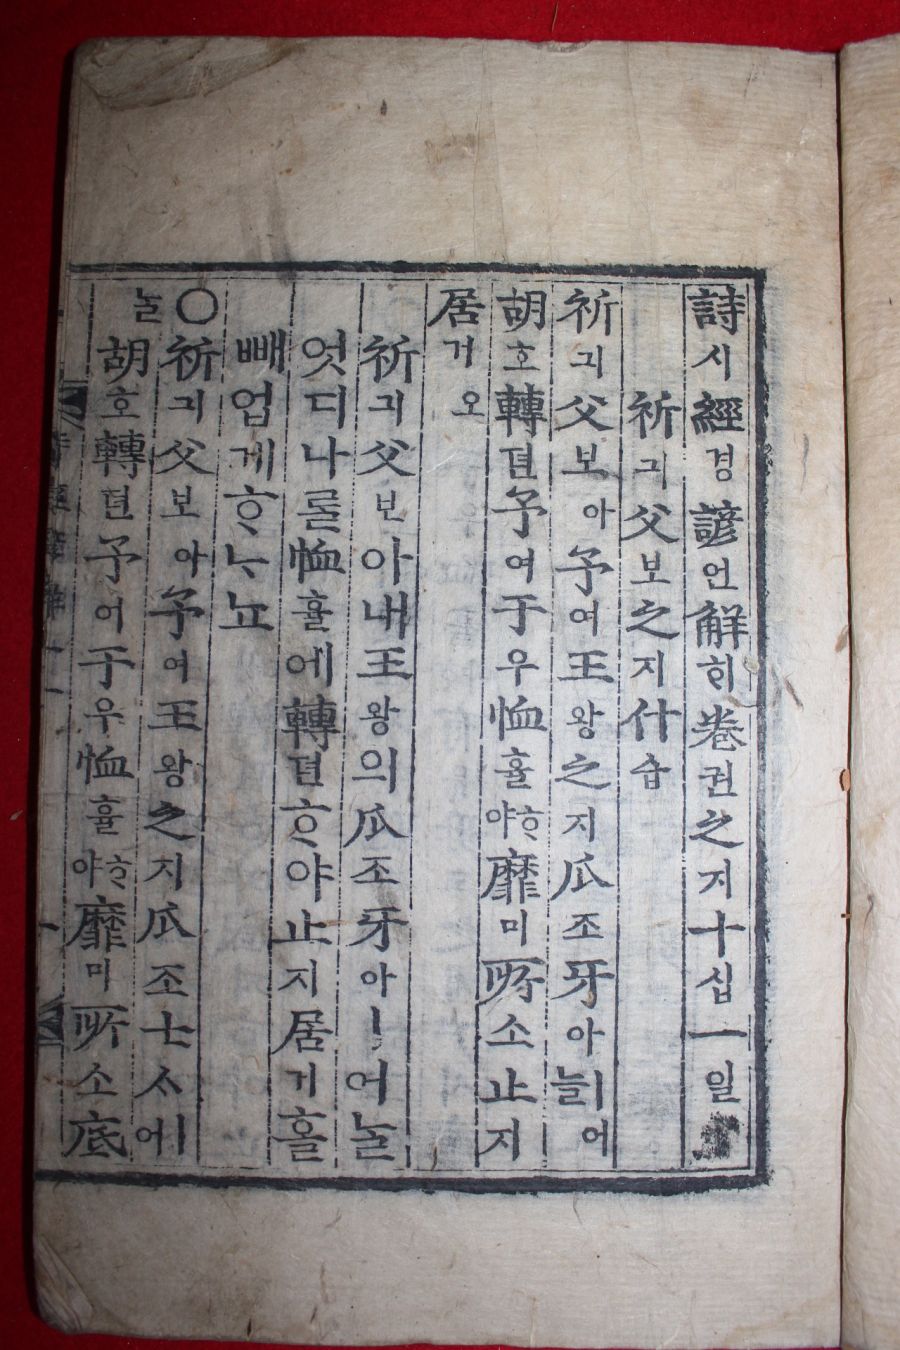 詩시經경諺언解ᄒᆡ卷권之지十십一일
祈긔父보之지什습
祈긔父보아予여王왕之지爪조牙아ㅣ어늘
胡호轉뎐予여于우恤휼ᄒᆞ야靡미所소止지
居거오
祈긔父보아내王왕의爪조牙아ㅣ어놀
엇디나롤恤휼에轉뎐ᄒᆞ야止지居거홀
빼업게ᄒᆞᄂᆞ뇨
○祈긔父보아予여王왕之지爪조士ᄉᆞㅣ어
놀胡호轉뎐予여于우恤휼ᄒᆞ야靡미所소底